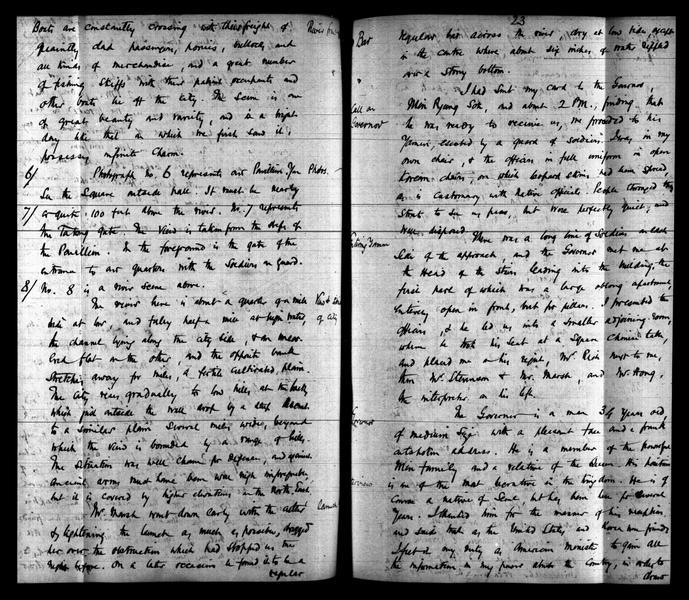 Boats are constantly crossing with their freight of
quaintly clad passengers, ponies, bullocks and
all kinds of merchandise and a great number
of fishing skiffs with their patient occupants and
other boats lie off the city. The scene is one
of great beauty and variety, and in a bright
day like that in which we first saw it,
possesses infinite charm.
6/ Photograph No. 6 represents our Pavilion Photos.
in the Square outside hall. It must be nearly
7/ or quite 100 feet above the river. No. 7 represents
the Taitong Gate. The view is taken from the steps of
the Pavilion. In the foreground is the gate of the
entrance to our quarters with the Soldiers on guard.
8/ No. 8 is a river scene above.
The river here is about a quarter of a mile
wide at low, and fully half a mile at high water,
the channel lying along the city side, & an
flat on the other, and the opposite bank
stretches away for miles, a fertile cultivated plain.
The City rises gradually to low hills at the back,
which just outside the wall drop by a steep descent
to a similar plain several miles wide, beyond
which the view is bounded by a range of hills.
The situation was well chosen for defense, and against
ancient arms must have been well nigh impregnable
but it is covered by higher elevations in the North East.
Mr. Marsh went down early with the cutter Launch
& lightening the launch as much as possible, dragged
her over the obstruction which had stopped us the
night before. On a later occasion he found it to be a
regular
23
Bar regular bar across the river, dry at low tide, except
in the centre where about six inches of water rippled
over a stony bottom.
I had sent my card to the Governor,
Call on Min Pyong Sok, and about 2 P.M., finding that
Governor he was ready to receive us, we proceeded to his
Yamen, escorted by a guard of soldiers. I was, in my
own chair, & the officers in full uniform in open
Korean chairs, on which leopard skins had been spread,
as is customary with native officials. People thronged the
street to see us pass, but were perfectly quiet, and
well disposed.
There was a long line of Soldiers on each
side of the approach, and the Governor met me at
the head of the stairs leading into the building, the
first part of which was a large oblong apartment,
entirely open in front, but for pillars. I presented the
officers, & he led us into a smaller adjoining room
where he took his seat at a square table,
and placed me on his right, Mr. Rein next to me,
then Mr. Stevenson & Mr. Marsh, and Mr. Hong,
the interpreter on his left.
The Governor is a man 34 years old,
Governor of medium size with a pleasant face and a frank
address. He is a member of the powerful
Min family and a relative of the Queen. His position
is one of the most lucrative in the kingdom. He is of
course a native of Seoul but has been here for several
years. I thanked him for the manner of his reception
and said that as the United States and Korea were friends
I felt it my duty as American Minister to gain all
the information in my power about the Country, in order to